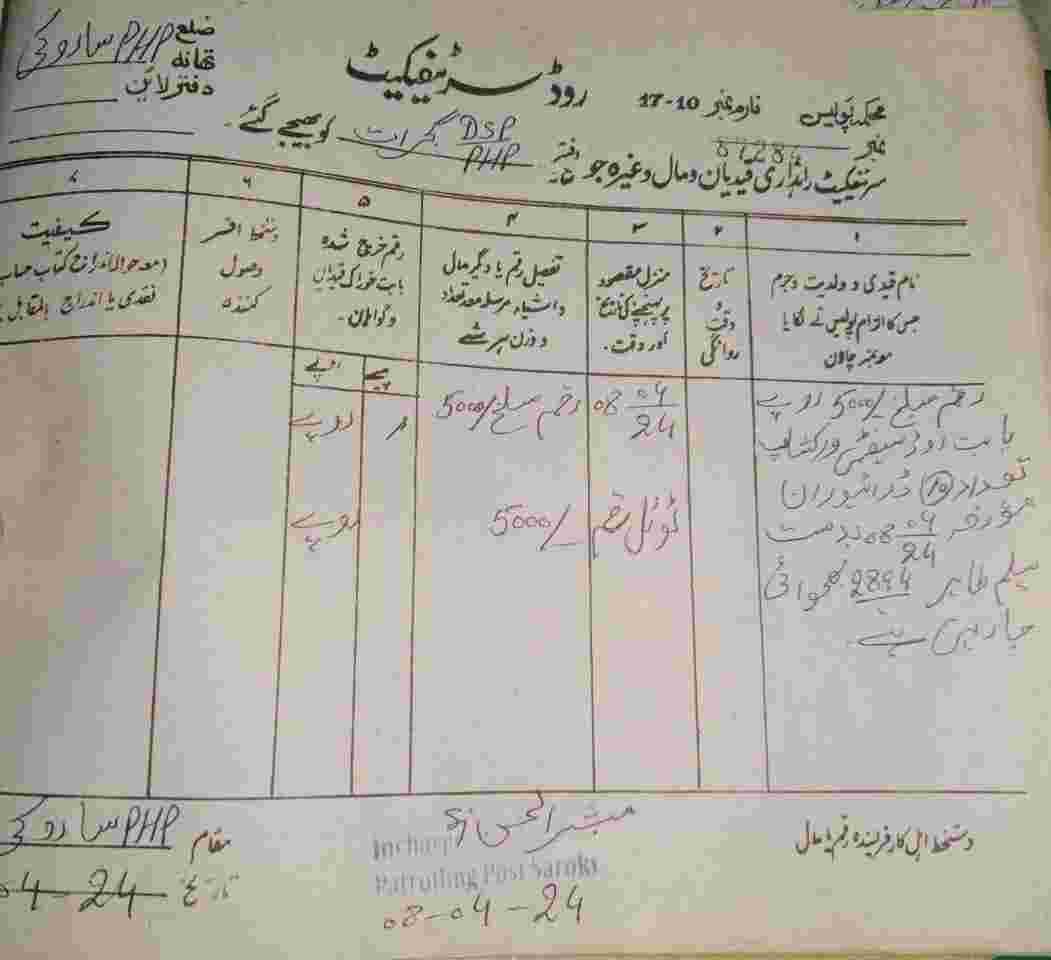 محکمہ پولیس فارم نمبر 10-17
روڈ سرٹیفکیٹ
ضلع
تھانہ PHP ساروکی
دفتر لائن
نمبر
سرٹیفکیٹ راہداری قیدیان و مال وغیرہ جو دفتر DSP PHP گجرات کو بھیجے گئے۔
۱ ۲ ۳ ۴ ۵ ۶ ۷
نام قیدی و ولدیت و جرم
جس کا الزام پولیس نے لگایا
مع نمبر چالان
تاریخ
و
وقت
روانگی
منزل مقصود
پر پہنچنے کی تاریخ
اور وقت۔
تفصیل رقم یا دیگر مال
و اشیاء مرسلہ معہ تعداد
و وزن ہر شے
رقم خرچ شدہ
بابت خوراک قیدیان
و گواہان۔
دستخط افسر
وصول
کنندہ
کیفیت
(معہ حوالہ اندراج کتاب حساب
نقدی یا اندراج بالمقابل
روپے پیسے
رقم مبلغ 5000/ روپے
بابت روڈ سیفٹی ورکشاپ
تعداد (10) ڈرائیوران
مورخہ 08-04-24 بدست
سلیم طاہر 2894 بھجوائی
جا رہی ہے۔
08-04-24
رقم مبلغ 5000/
روپے
ٹوٹل رقم 5000/
روپے
دستخط اہل کار فریسندہ رقم یا مال
مبشر الحسن
Incharge
Patrolling Post Saroky
08-04-24
مقام PHP ساروکی
تاریخ 04-24